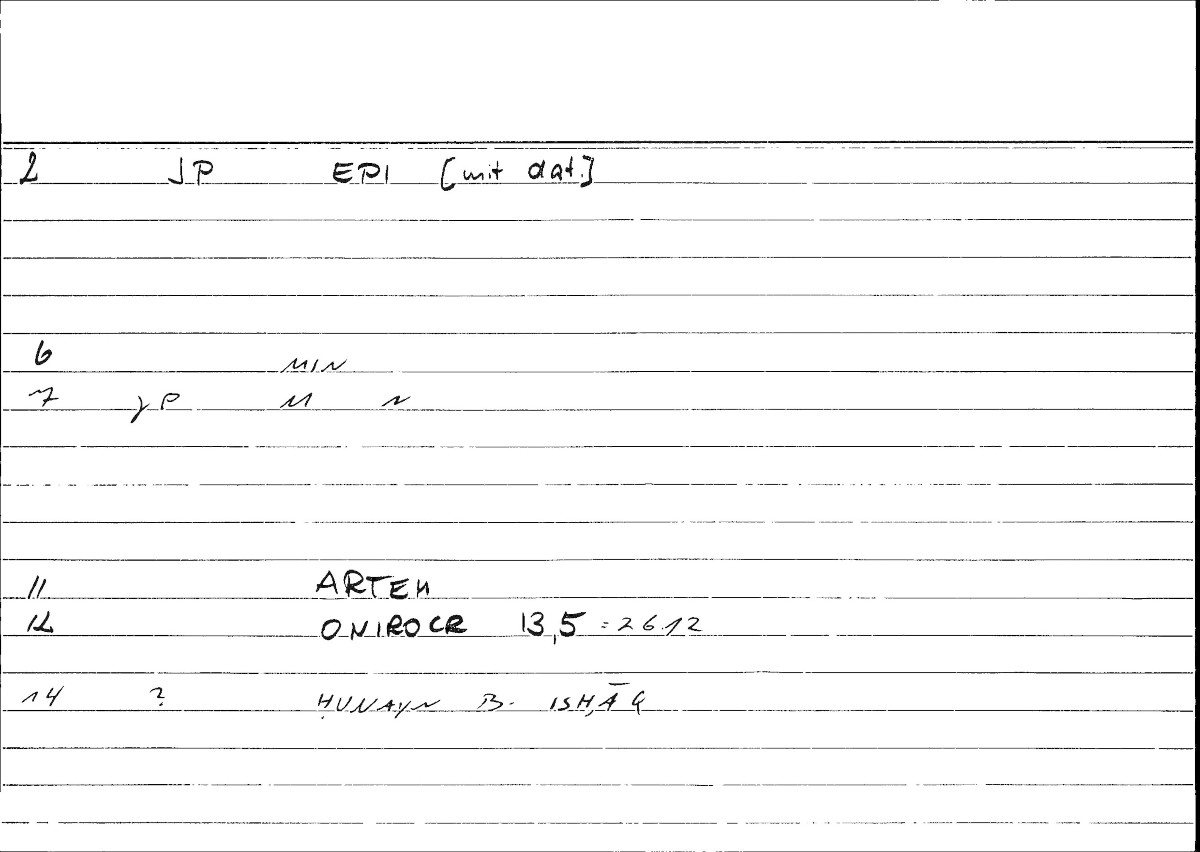 2 JP EPI [mit dat.]
6 MIN
7 JP M N
11 ARTEM
12 ONIROCR 13,5 = 26.12
14 ? ḤUNAYN B. ISḤĀQ